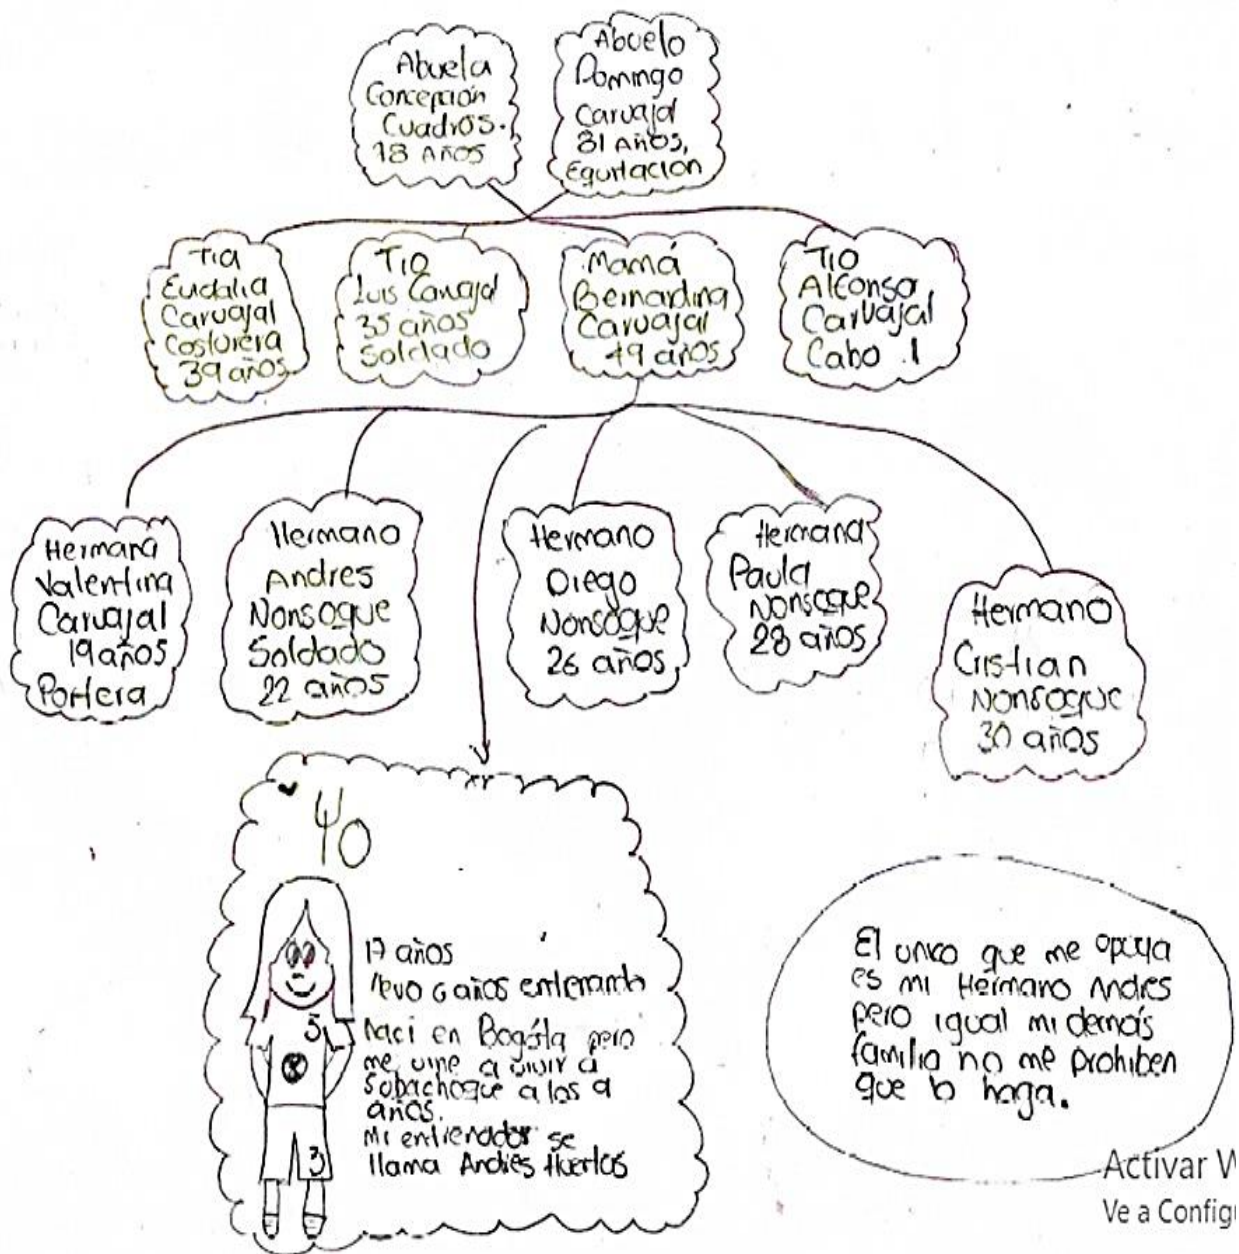 Abuela
Concepción
Cuadros.
78 AÑOS
Abuelo
Domingo
Carvajal
81 AÑOS,
Equitacion
Tia
Eudalia
Carvajal
Costurera
39 años
Tio
Luis Carvajal
35 años
Soldado
Mamá
Bernardina
Carvajal
49 años
Tio
Alfonso
Carvajal
Cabo 1
Hermana
Valentina
Carvajal
19 años
Portera
Hermano
Andres
Nonsoque
Soldado
22 años
Hermano
Diego
Nonsoque
26 años
Hermana
Paula
Nonsoque
28 años
Hermano
Cristian
Nonsoque
30 años
Yo
17 años
llevo 6 años entrenando
Naci en Bogóta pero
me vine a vivir a
Subachoque a los 9
años.
Mi entrenador se
llama Andres Huertas
5
3
El unico que me apoya
es mi Hermano Andres
pero igual mi demás
familia no me prohiben
que lo haga.
Activar W
Ve a Configu